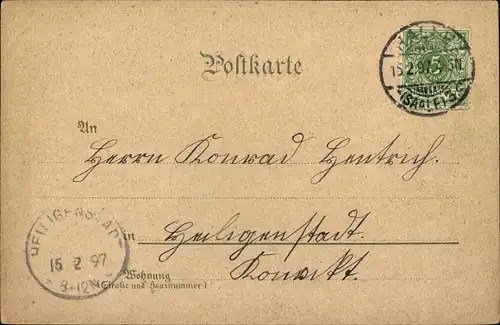 HALLE
15.2.97.
(SAALE)
5
Postkarte
An
Herrn Konrad Hentrich.
HEILIGENSTADT
15 2 97
8-12N
in Heiligenstadt.
Wohnung
(Straße und Hausnummer)
Konvikt.